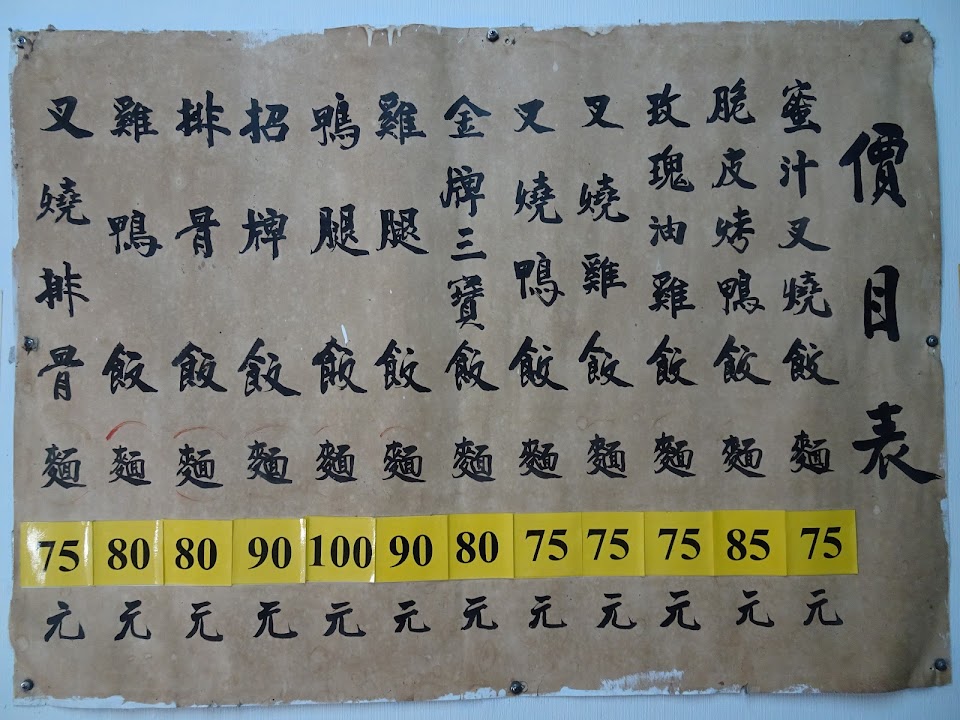 價目表
蜜汁叉燒飯麵75元
脆皮烤鴨飯麵85元
玫瑰油雞飯麵75元
叉燒雞飯麵75元
叉燒鴨飯麵75元
金牌三寶飯麵80元
雞腿飯麵90元
鴨腿飯麵100元
招牌飯麵90元
排骨飯麵80元
雞鴨飯麵80元
叉燒排骨麵75元